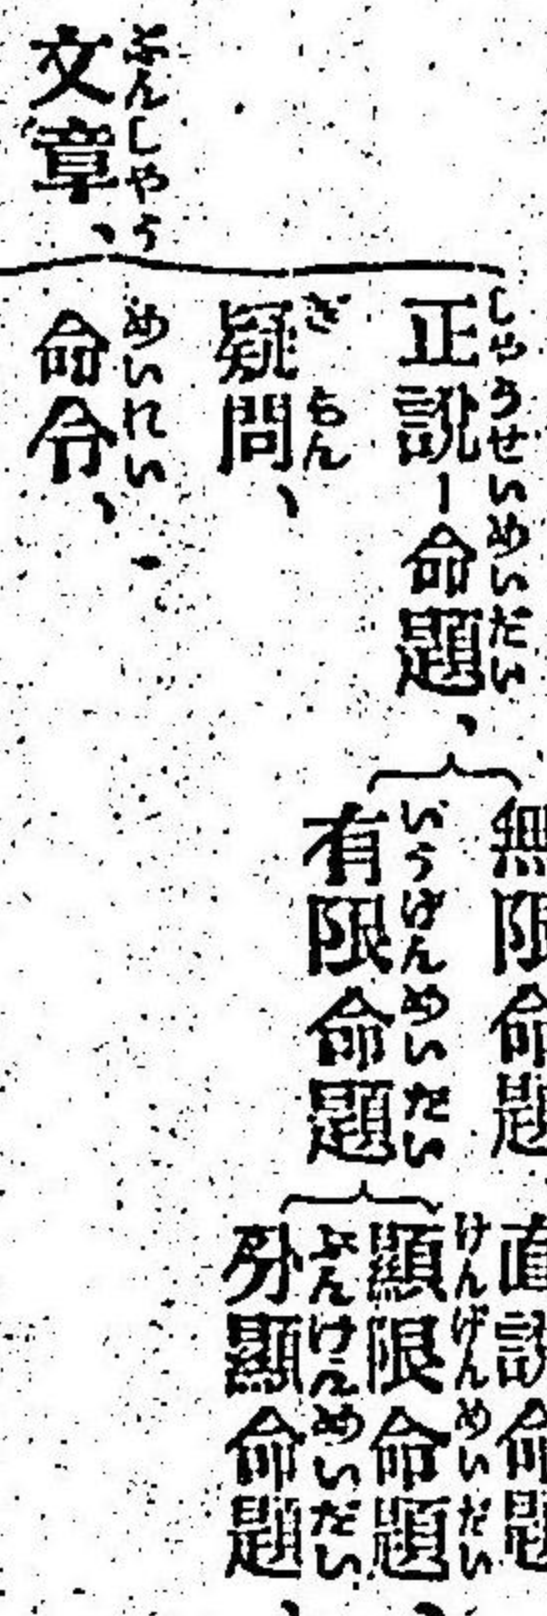 文章、
ぶんしやう
正說ー命題、
しやうせいめいだい
疑問、
ぎもん
命令、
めいれい
無限命題
有限命題
いうげんめいだい
顯限命題、
けんげんめいだい
分顯命題、
ぶんけんめいだい